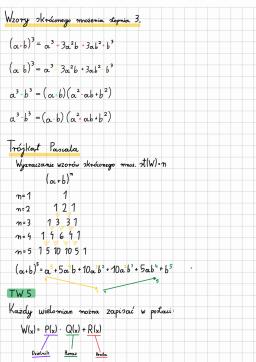 Wzory skróconego mnożenia stopnia 3.
(a+b)³ = a³ + 3a²b + 3ab² + b³
(a-b)³ = a³ - 3a²b + 3ab² - b³
a³ + b³ = (a+b)(a² - ab + b²)
a³ - b³ = (a-b)(a² + ab + b²)
Trójkąt Pascala
Wyznaczanie wzorów skróconego mnoż. st(W)=n
(a+b)ⁿ
n=1 1 1
n=2 1 2 1
n=3 1 3 3 1
n=4 1 4 6 4 1
n=5 1 5 10 10 5 1
(a+b)⁵ = a⁵ + 5a⁴b + 10a³b² + 10a²b³ + 5ab⁴ + b⁵
TW 5
Każdy wielomian można zapisać w postaci:
W(x) = P(x) · Q(x) + R(x)
Dzielnik Iloraz Reszta